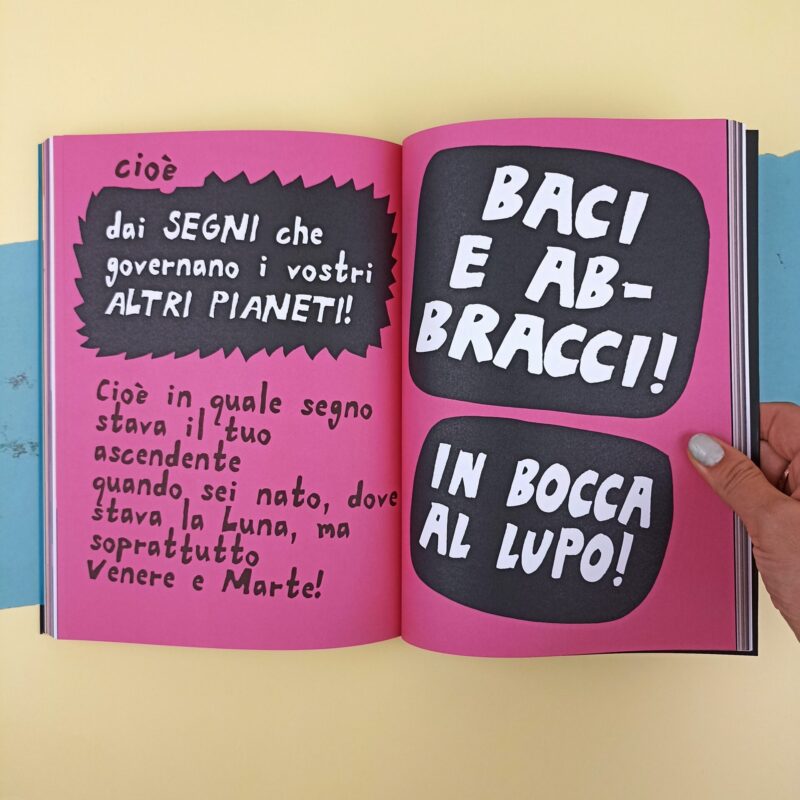 cioè
dai SEGNI che
governano i vostri
ALTRI PIANETI!
Cioè in quale segno
stava il tuo
ascendente
quando sei nato, dove
stava la Luna, ma
soprattutto
Venere e Marte!
BACI
E AB-
BRACCI!
IN BOCCA
AL LUPO!